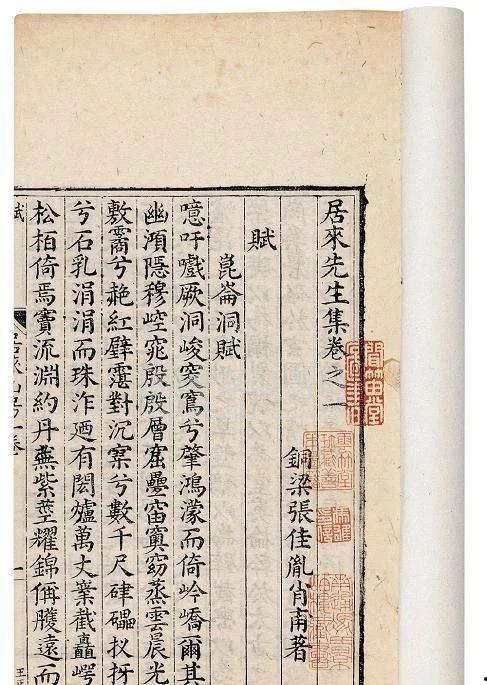 居來先生集卷之一
銅梁張佳胤肖甫著
賦
崑崙洞賦
噫吁嚱厥洞峻窔窵兮肇鴻濛而倚岭嶠爾其
幽澒隱穆崆竉殷殷層窟疊窗窔窈蒸雲晨光
敷霱兮赩紅壁霮對沉寀兮數千尺硉礧㧕枒
兮石乳涓涓而珠泎廼有閎爐萬丈業嶻矗崿
松栢倚焉寶流淵約丹蕪紫䔄耀錦侢䑃遠而
賦
一